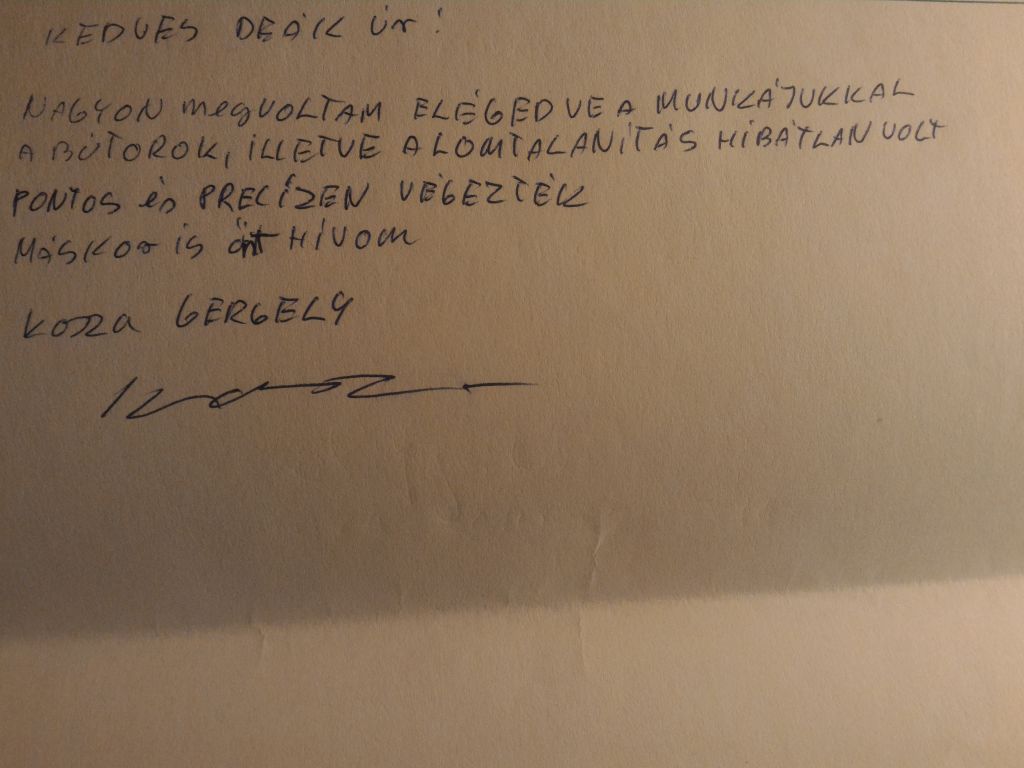 KEDVES DEÁK ÚR!
NAGYON megVOLTAM ELÉGEDVE A MUNKÁJUKKAL
A BÚTOROK, ILLETVE A LOMTALANÍTÁS HIBÁTLAN VOLT
PONTOS és PRECÍZEN VÉGEZTÉK
MÁSKOR IS HÍVOM
KOSZA GERGELY